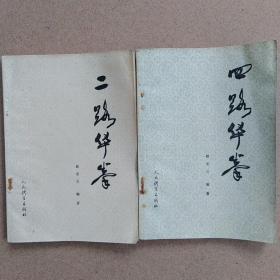 二路华拳
编著
人民体育出版社
四路华拳
编著
人民体育出版社